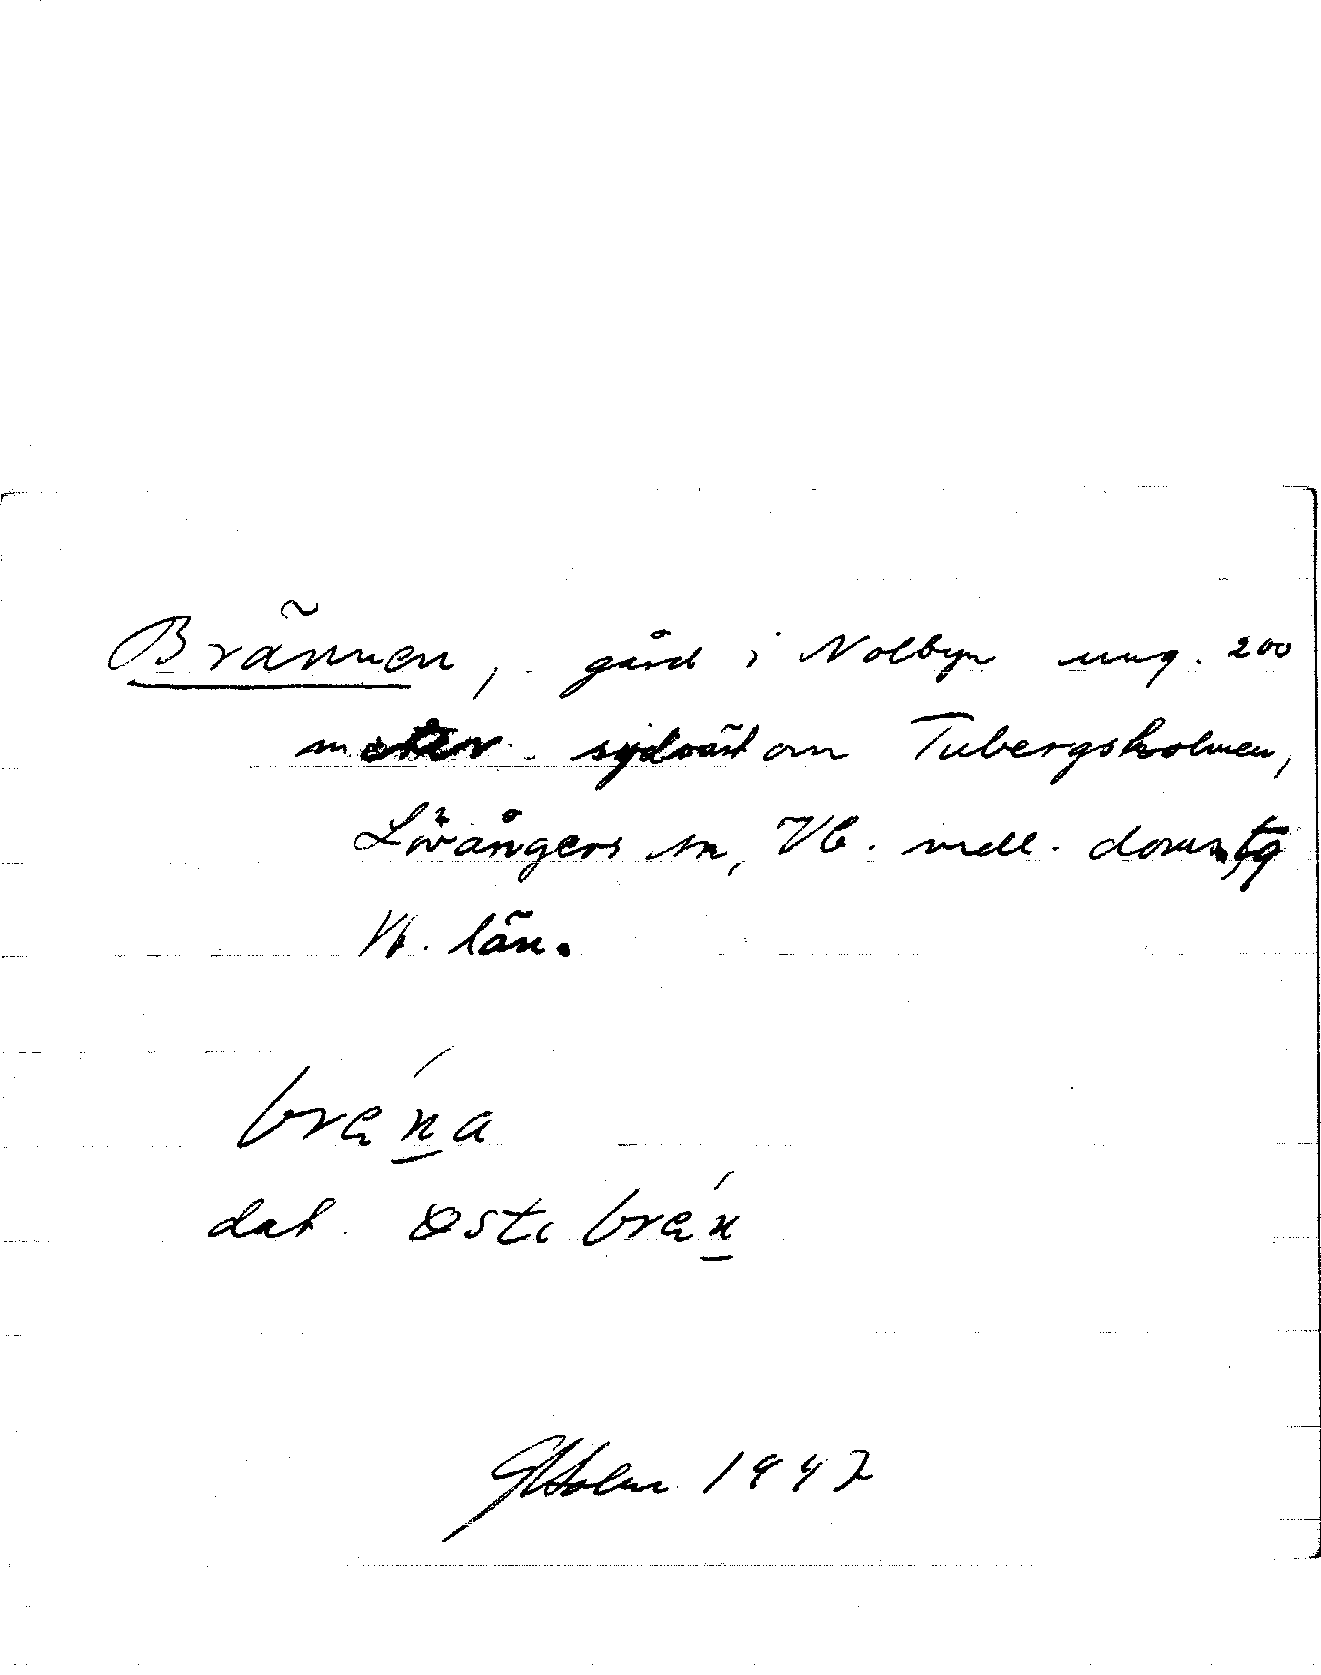 Brännen, gård i Nolbyn ung. 200
meter sydväst om Tubergsholmen,
Lövångers sn, Vb. mell. doms,tg
Vb. län.
bre´n̲a
dat. øste bre´n̲
GHolm 1947